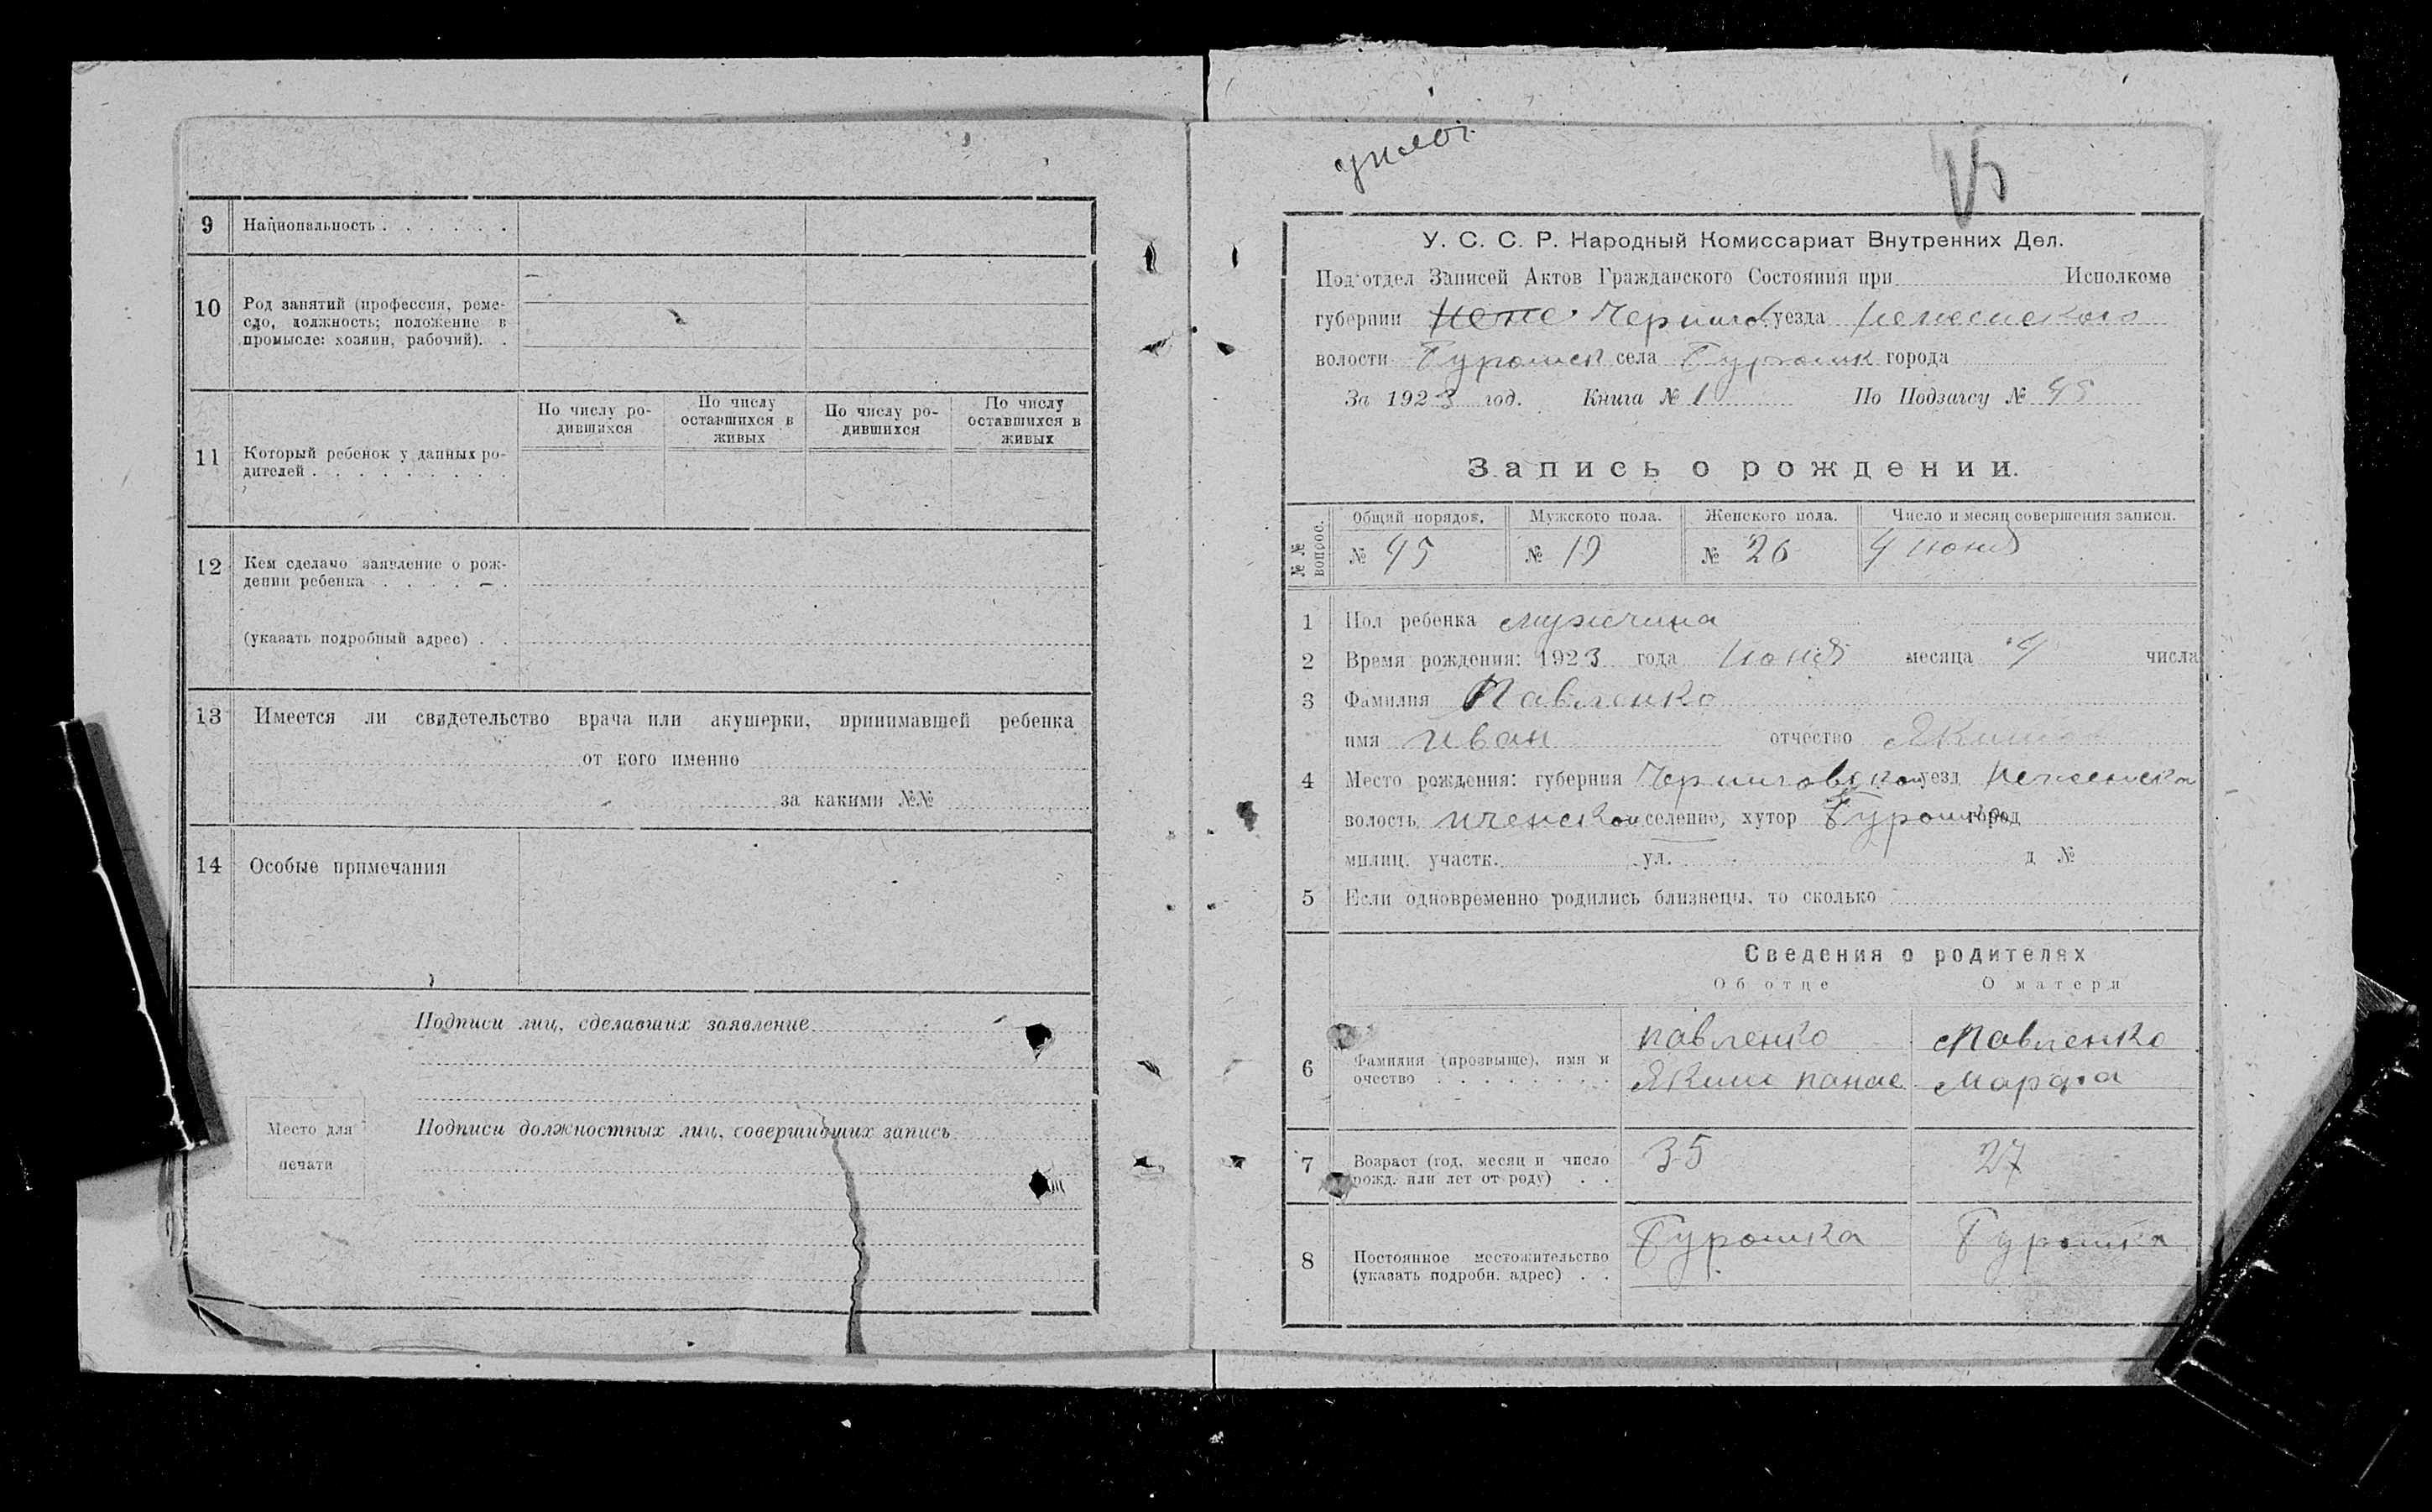 9 Национальность
10 Род занятий (профессия, реме-
сло, должность; положение в
промысле: хозяин, рабочий).
11 Который ребенок у данных ро-
дителей
По числу ро-
дившихся
По числу
оставшихся в
живых
По числу ро-
дившихся
По числу
оставшихся в
живых
12 Кем сделано заявление о рож-
дении ребенка
(указать подробный адрес)
13 Имеется ли свидетельство врача или акушерки, принимавшей ребенка
от кого именно
за какими №№
14 Особые примечания
Подписи лиц, сделавших заявление
Место для
печати
Подписи должностных лиц, совершивших запись
У. С. С. Р. Народный Комиссариат Внутренних Дел.
Подотдел Записей Актов Гражданского Состояния при Исполкоме
губернии Чернигов уезда
волости села города
За 1923 год. Книга № 1 По Подзагсу № 45
Запись о рождении.
№№ вопрос.
Общий порядов. Мужского пола. Женского пола. Число и месяц совершения записи.
№ 45 № 19 № 26 4 июня
1 Пол ребенка мужчина
2 Время рождения: 1923 года июня месяца 4 числа
3 Фамилия Павленко
имя иван отчество Яким
4 Место рождения: губерния Черниговской уезд
волость иченской селение, хутор город
милиц. участк. ул. д №
5 Если одновременно родились близнецы, то сколько
Сведения о родителях
Об отце О матери
6 Фамилия (прозвыще), имя и
очество
павленко
Яким панас
Павленко
Марфа
7 Возраст (год, месяц и число
рожд. или лет от роду)
35 27
8 Постоянное местожительство
(указать подробн. адрес)